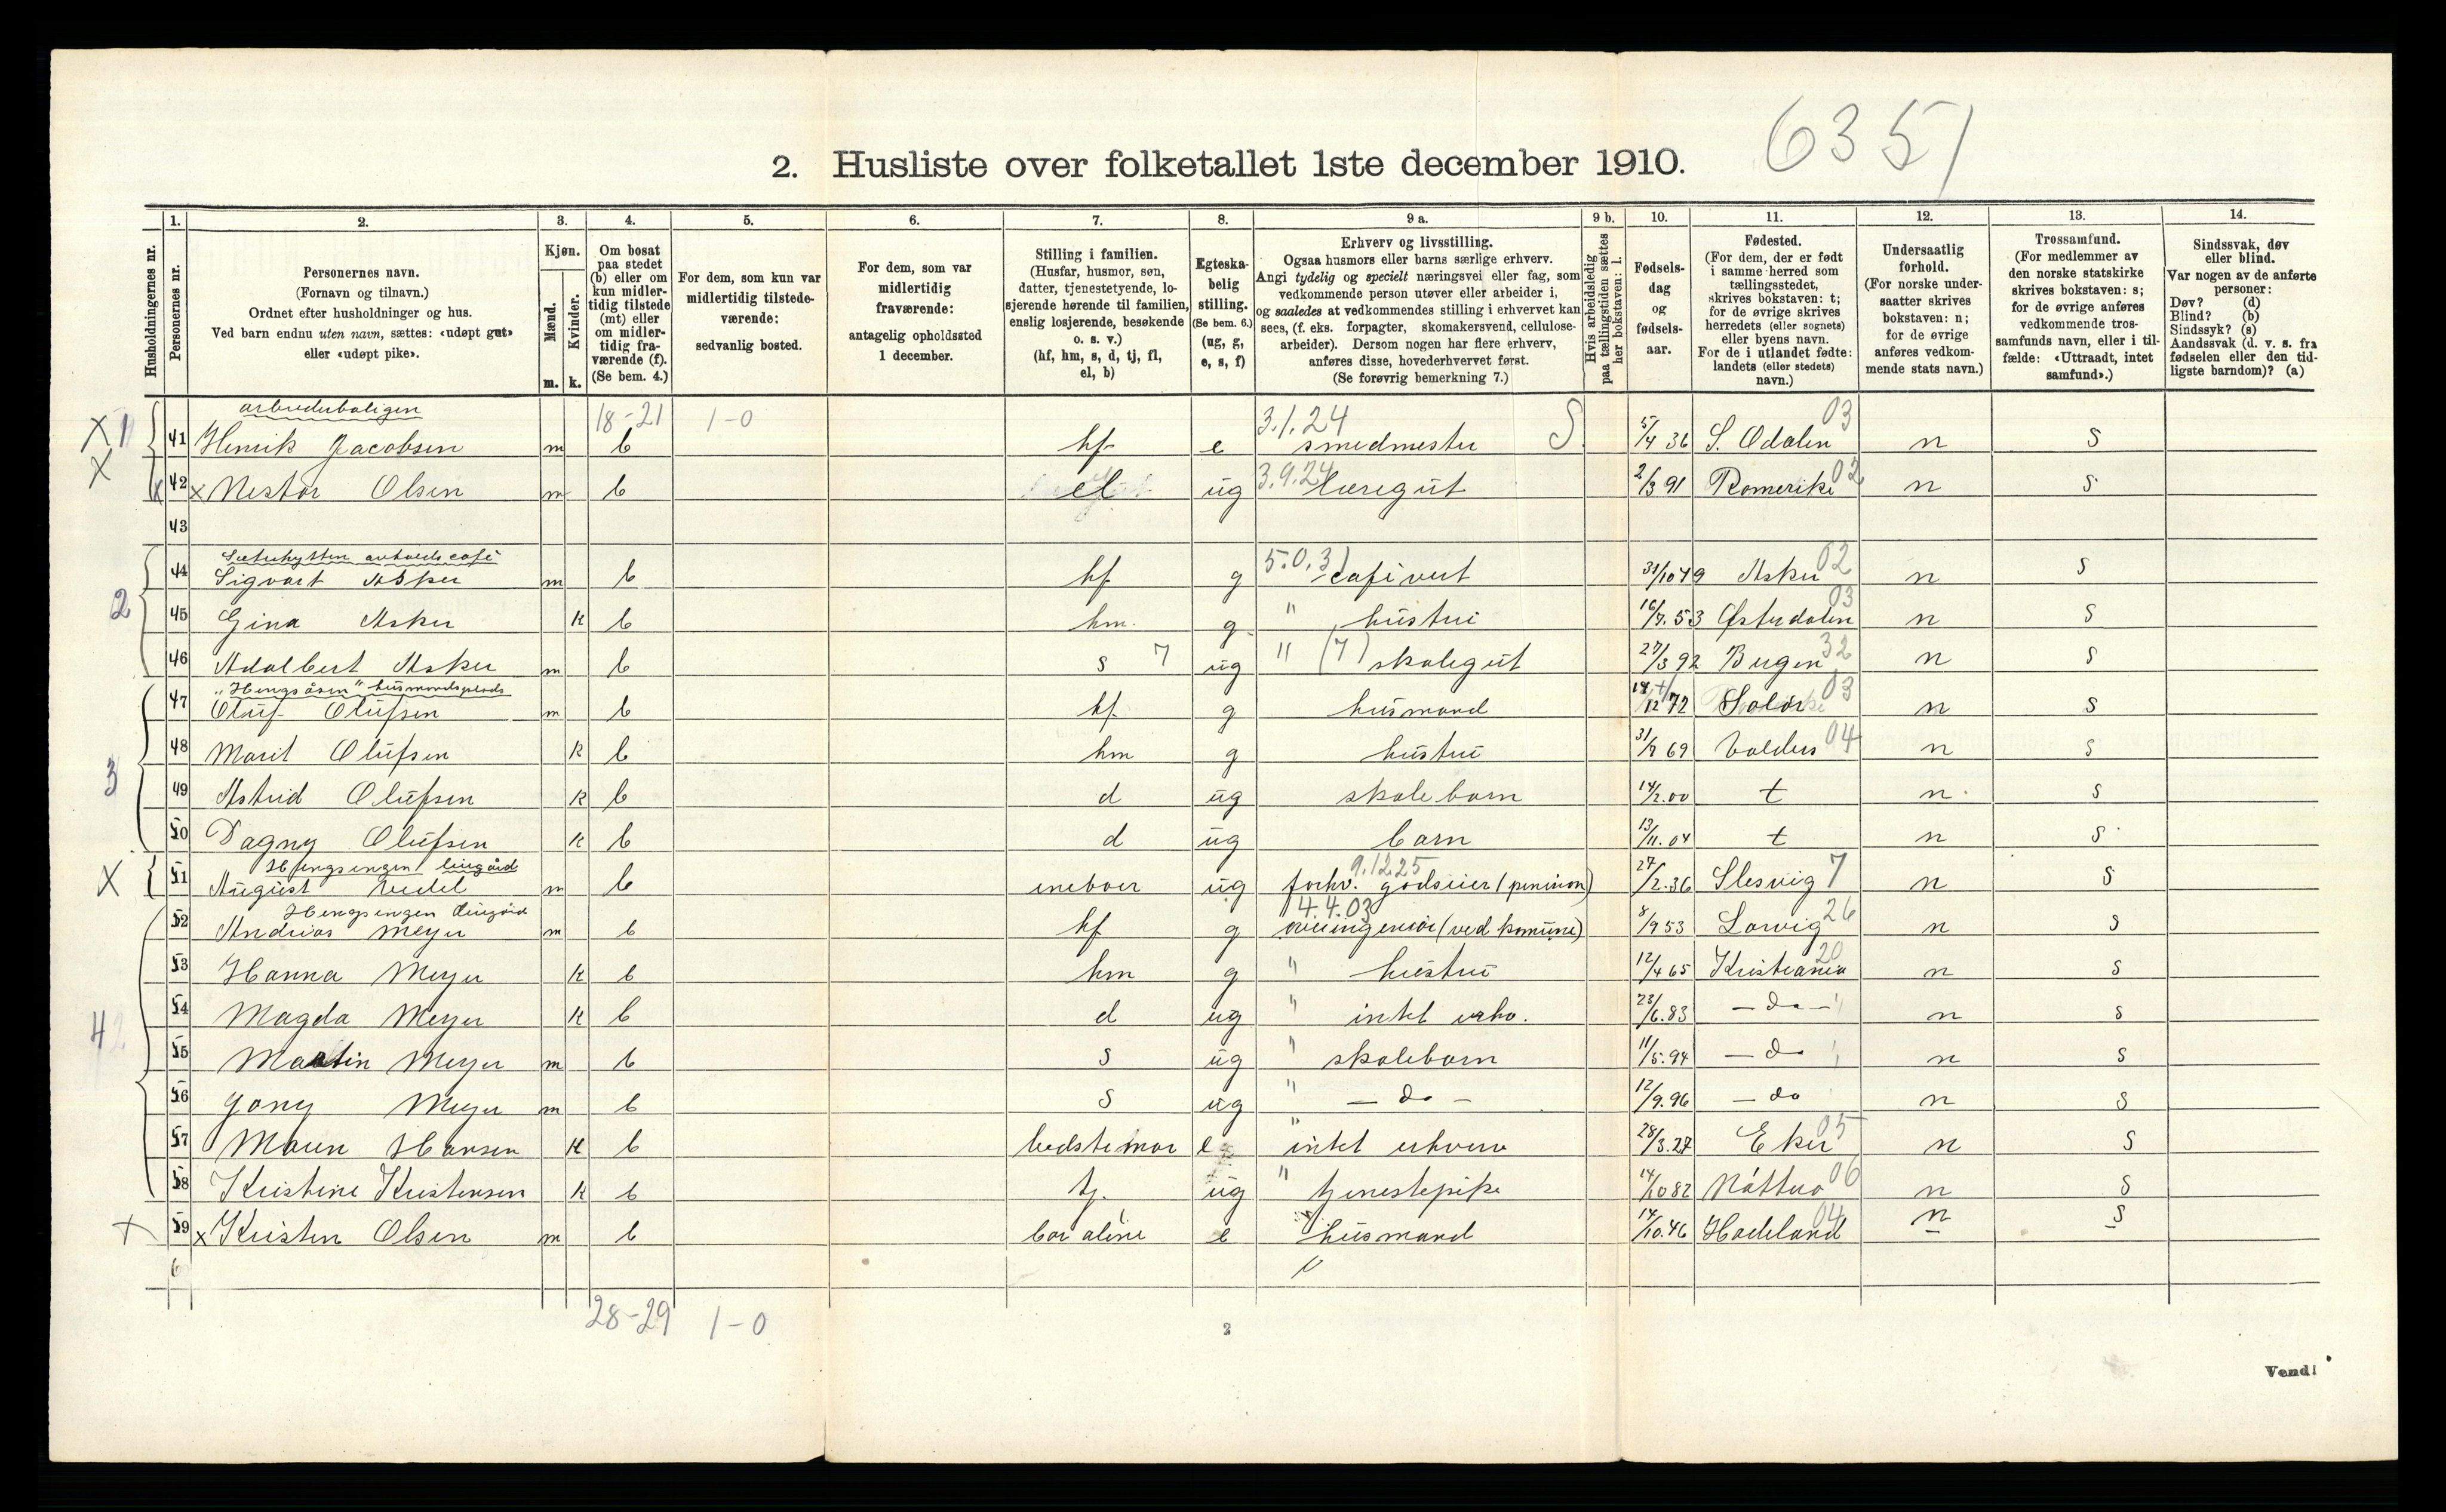 6351
2. Husliste over folketallet 1ste december 1910.
Husholdningernes nr.
1. Personernes nr.
2. Personernes navn. (Fornavn og tilnavn.) Ordnet efter husholdninger og hus. Ved barn endnu uten navn, sættes: «udøpt gut» eller «udøpt pike».
3. Kjøn. Mænd. m. Kvinder. k.
4. Om bosat paa stedet (b) eller om kun midlertidig tilstede (mt) eller om midlertidig fraværende (f). (Se bem. 4.)
5. For dem, som kun var midlertidig tilstedeværende: sedvanlig bosted.
6. For dem, som var midlertidig fraværende: antagelig opholdssted 1 december.
7. Stilling i familien. (Husfar, husmor, søn, datter, tjenestetyende, losjerende hørende til familien, enslig losjerende, besøkende o. s. v.) (hf, hm, s, d, tj, fl, el, b)
8. Egteskabelig stilling. (Se bem. 6.) (ug, g, e, s, f)
9 a. Erhverv og livsstilling. Ogsaa husmors eller barns særlige erhverv. Angi tydelig og specielt næringsvei eller fag, som vedkommende person utøver eller arbeider i, og saaledes at vedkommendes stilling i erhvervet kan sees, (f. eks. forpagter, skomakersvend, cellulosearbeider). Dersom nogen har flere erhverv, anføres disse, hovederhvervet først. (Se forøvrig bemerkning 7.)
9 b. Hvis arbeidsledig paa tællingstiden sættes her bokstaven: l.
10. Fødselsdag og fødselsaar.
11. Fødested. (For dem, der er født i samme herred som tællingsstedet, skrives bokstaven: t; for de øvrige skrives herredets (eller sognets) eller byens navn. For de i utlandet fødte: landets (eller stedets) navn.)
12. Undersaatlig forhold. (For norske undersaatter skrives bokstaven: n; for de øvrige anføres vedkommende stats navn.)
13. Trossamfund. (For medlemmer av den norske statskirke skrives bokstaven: s; for de øvrige anføres vedkommende trossamfunds navn, eller i tilfælde: «Uttraadt, intet samfund».)
14. Sindssvak, døv eller blind. Var nogen av de anførte personer: Døv? (d) Blind? (b) Sindssyk? (s) Aandssvak (d. v. s. fra fødselen eller den tidligste barndom)? (a)
arbeiderboligen 18-21 1-0 3.1.24 03
X 1 41 Henrik Jacobsen m b hf e smedmester S 5/4 36 S. Odalen n s
X 42 x Nestor Olsen m b el ug 3.9.24 læregut 2/3 91 Romerike 02 n s
43
Sæterhytten avholdscafé
2 44 Sigvart Asker m b hf g 5.0.3 cafévert 31/10 49 Asker 02 n s
45 Gina Asker k b hm. g " hustru 16/7. 53 Østerdalen 03 n s
46 Adalbert Asker m b s 7 ug " (7) skolegut 27/3 92 Bergen 32 n s
"Hengsåsen" husmandsplads
3 47 Oluf Olufsen m b hf g husmand 14/12 72 Solør 03 n s
48 Marit Olufsen k b hm g hustru 31/7 69 Valders 04 n s
49 Astrid Olufsen k b d ug skolebarn 14/2.00 t n s
50 Dagny Olufsen k b d ug barn 13/11.04 t n s
Hengsengen 9.12.25
X 51 August Vedel m b eneboer ug forhv. godseier (pension) 27/2.36 Slesvig 7 n s
Hengsengen 4.4.03
4 52 Andreas Meyer m b hf g (ved komune) 8/9 53 Larvig 26 n s
53 Hanna Meyer k b hm g " hustru 12/4 65 Kristiania 20 n s
54 Magda Meyer k b d ug " intet erhv. 23/6.83 — do — n s
55 Martin Meyer m b s ug " skolebarn 11/5.94 — do n s
56 Jony Meyer m b s ug " — do — 12/9.96 — do n s
57 Maren Hansen k b bedstemor e " intet erhverv 28/3.27 Eker 05 n s
58 Kristine Kristensen k b tj. ug " tjenestepike 14/10 82 Nøtterø 06 n s
+ 59 x Kristen Olsen m b bor alene e husmand 14/10.46 Hadeland 04 n s
6
28-29 1-0
2
Vend!